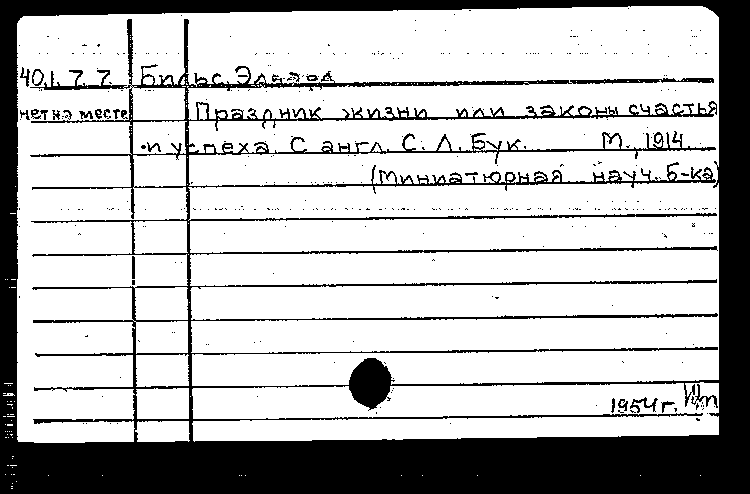 40.1.7.7. Бильс, Эдвард
нет на месте Праздник жизни или законы счастья
и успеха. С англ. С. Л. Бук. М., 1914
(Миниатюрная науч. б-ка)
1954 г.